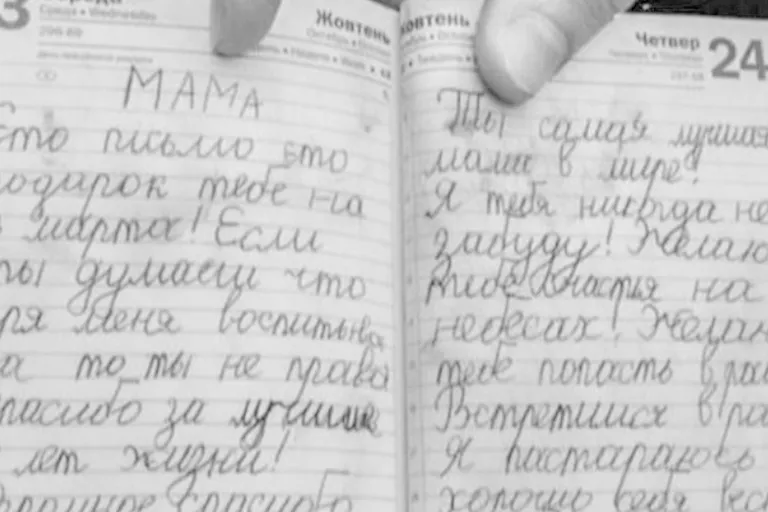 3
Середа
Среда • Wednesday
Жовтень
МАМА
Это письмо это
подарок тебе на
марта! Если
ты думаеш что
зря меня воспитыва
ла то ты не права
Спасибо за лучшие
лет жизни!
Огромное спасибо
Жовтень
Четвер
24
Ты самая лучшая
мама в мире!
Я тебя никогда не
забуду! Желаю
тебе счастья на
небесах! Желаю
тебе попасть в рай
Встретимся в раю
Я постараюсь
хорошо себя вес